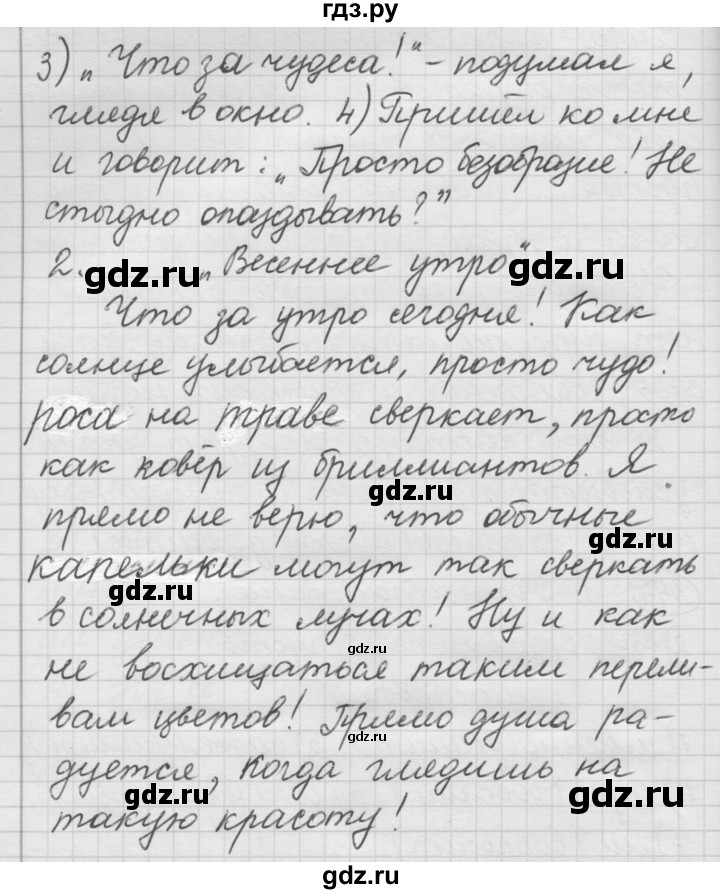 гдз.ру
3) „Что за чудеса!“ - подумал я,
глядя в окно. 4) Пришёл ко мне
и говорит: „Просто безобразие! Не
стыдно опаздывать?”
2. „Весеннее утро“
gdz.ru gdz.ru
Что за утро сегодня! Как
солнце улыбается, просто чудо!
gdz.ru gdz.ru
роса на траве сверкает, просто
как ковёр из бриллиантов. Я
gdz.ru
прямо не верю, что обычные
gdz.ru
капельки могут так сверкать
gdz.ru
в солнечных лучах! Ну и как
gdz.ru
не восхищаться таким перели-
вам цветов! Прямо душа ра-
gdz.ru
дуется, когда глядишь на
gdz.ru gdz.ru
такую красоту!
gdz.ru